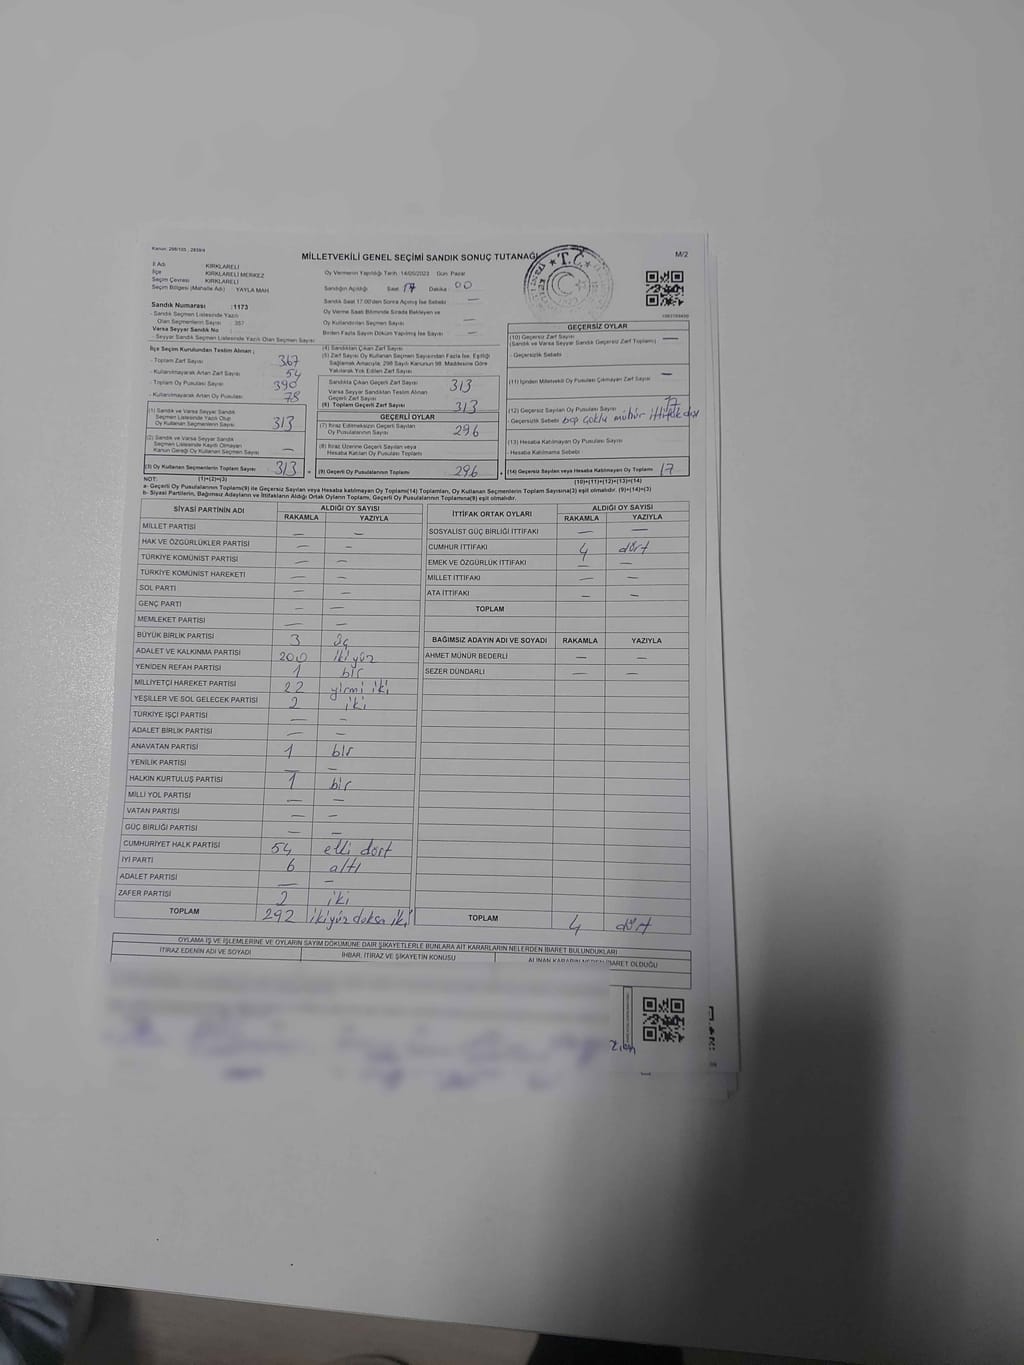 Kanun: 298/105 , 2839/4
MİLLETVEKİLİ GENEL SEÇİMİ SANDIK SONUÇ TUTANAĞI
M/2
İl Adı : KIRKLARELİ
İlçe : KIRKLARELİ MERKEZ
Seçim Çevresi : KIRKLARELİ
Seçim Bölgesi (Mahalle Adı) : YAYLA MAH.
Sandık Numarası : 1173
- Sandık Seçmen Listesinde Yazılı Olan Seçmenlerin Sayısı : 357
Varsa Seyyar Sandık No :
- Seyyar Sandık Seçmen Listesinde Yazılı Olan Seçmen Sayısı :
Oy Vermenin Yapıldığı Tarih :14/05/2023 Gün: Pazar
Sandığın Açıldığı Saat 17 Dakika 00
Sandık Saat 17.00'den Sonra Açılmış İse Sebebi —
Oy Verme Saati Bitiminde Sırada Bekleyen ve
Oy Kullandırılan Seçmen Sayısı —
Birden Fazla Sayım Döküm Yapılmış İse Sayısı —
T.C.
İlçe Seçim Kurulundan Teslim Alınan ;
- Toplam Zarf Sayısı 367
- Kullanılmayarak Artan Zarf Sayısı 54
- Toplam Oy Pusulası Sayısı 390
- Kullanılmayarak Artan Oy Pusulası 78
(1) Sandık ve Varsa Seyyar Sandık Seçmen Listesinde Yazılı Olup Oy Kullanan Seçmenlerin Sayısı 313
(2) Sandık ve Varsa Seyyar Sandık Seçmen Listesinde Kayıtlı Olmayan Kanun Gereği Oy Kullanan Seçmenlerin Sayısı —
(3) Oy Kullanan Seçmenlerin Toplam Sayısı 313
(1)+(2)=(3)
(4) Sandıktan Çıkan Zarf Sayısı
(5) Zarf Sayısı Oy Kullanan Seçmen Sayısından Fazla İse, Eşitliği Sağlamak Amacıyla; 298 Sayılı Kanunun 98. Maddesine Göre Yakılarak Yok Edilen Zarf Sayısı
Sandıkta Çıkan Geçerli Zarf Sayısı 313
Varsa Seyyar Sandıktan Teslim Alınan Geçerli Zarf Sayısı
(6) Toplam Geçerli Zarf Sayısı 313
GEÇERLİ OYLAR
(7) İtiraz Edilmeksizin Geçerli Sayılan Oy Pusulalarının Sayısı 296
(8) İtiraz Üzerine Geçerli Sayılan veya Hesaba Katılan Oy Pusulaları Toplamı
(9) Geçerli Oy Pusulalarının Toplamı 296
GEÇERSİZ OYLAR
(10) Geçersiz Zarf Sayısı (Sandık ve Varsa Seyyar Sandık Geçersiz Zarf Toplamı) —
- Geçersizlik Sebebi
(11) İçinden Milletvekili Oy Pusulası Çıkmayan Zarf Sayısı —
(12) Geçersiz Sayılan Oy Pusulası Sayısı 17
- Geçersizlik Sebebi çoklu mühür ittifak dışı
(13) Hesaba Katılmayan Oy Pusulası Sayısı
- Hesaba Katılmama Sebebi
(14) Geçersiz Sayılan veya Hesaba Katılmayan Oy Toplamı 17
(10)+(11)+(12)+(13)=(14)
NOT:
a- Geçerli Oy Pusulalarının Toplamı(9) ile Geçersiz Sayılan veya Hesaba Katılmayan Oy Toplam(14) Toplamları, Oy Kullanan Seçmenlerin Toplam Sayısına(3) eşit olmalıdır. (9)+(14)=(3)
b- Siyasi Partilerin, Bağımsız Adayların ve İttifakların Aldığı Ortak Oyların Toplamı, Geçerli Oy Pusulalarının Toplamına(9) eşit olmalıdır.
SİYASİ PARTİNİN ADI ALDIĞI OY SAYISI
RAKAMLA YAZIYLA
MİLLET PARTİSİ — —
HAK VE ÖZGÜRLÜKLER PARTİSİ — —
TÜRKİYE KOMÜNİST PARTİSİ — —
TÜRKİYE KOMÜNİST HAREKETİ — —
SOL PARTİ — —
GENÇ PARTİ — —
MEMLEKET PARTİSİ — —
BÜYÜK BİRLİK PARTİSİ 3 üç
ADALET VE KALKINMA PARTİSİ 200 ikiyüz
YENİDEN REFAH PARTİSİ 1 bir
MİLLİYETÇİ HAREKET PARTİSİ 22 yirmi iki
YEŞİLLER VE SOL GELECEK PARTİSİ 2 iki
TÜRKİYE İŞÇİ PARTİSİ — —
ADALET BİRLİK PARTİSİ — —
ANAVATAN PARTİSİ 1 bir
YENİLİK PARTİSİ — —
HALKIN KURTULUŞ PARTİSİ 1 bir
MİLLİ YOL PARTİSİ — —
VATAN PARTİSİ — —
GÜÇ BİRLİĞİ PARTİSİ — —
CUMHURİYET HALK PARTİSİ 54 elli dört
İYİ PARTİ 6 altı
ADALET PARTİSİ — —
ZAFER PARTİSİ 2 iki
TOPLAM 292 ikiyüz doksan iki
İTTİFAK ORTAK OYLARI ALDIĞI OY SAYISI
RAKAMLA YAZIYLA
SOSYALİST GÜÇ BİRLİĞİ İTTİFAKI — —
CUMHUR İTTİFAKI 4 dört
EMEK VE ÖZGÜRLÜK İTTİFAKI — —
MİLLET İTTİFAKI — —
ATA İTTİFAKI — —
TOPLAM
BAĞIMSIZ ADAYIN ADI VE SOYADI RAKAMLA YAZIYLA
AHMET MÜNÜR BEDERLİ — —
SEZER DÜNDARLI — —
TOPLAM 4 dört
OYLAMA İŞ VE İŞLEMLERİNE VE OYLARIN SAYIM DÖKÜMÜNE DAİR ŞİKAYETLERLE BUNLARA AİT KARARLARIN NELERDEN İBARET BULUNDUKLARI
İTİRAZ EDENİN ADI VE SOYADI İHBAR, İTİRAZ VE ŞİKAYETİN KONUSU ALINAN KARARIN NEDEN İBARET OLDUĞU